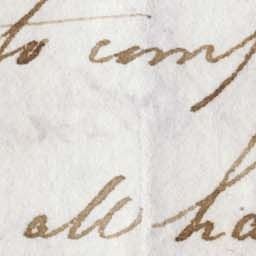 to comp
all ha